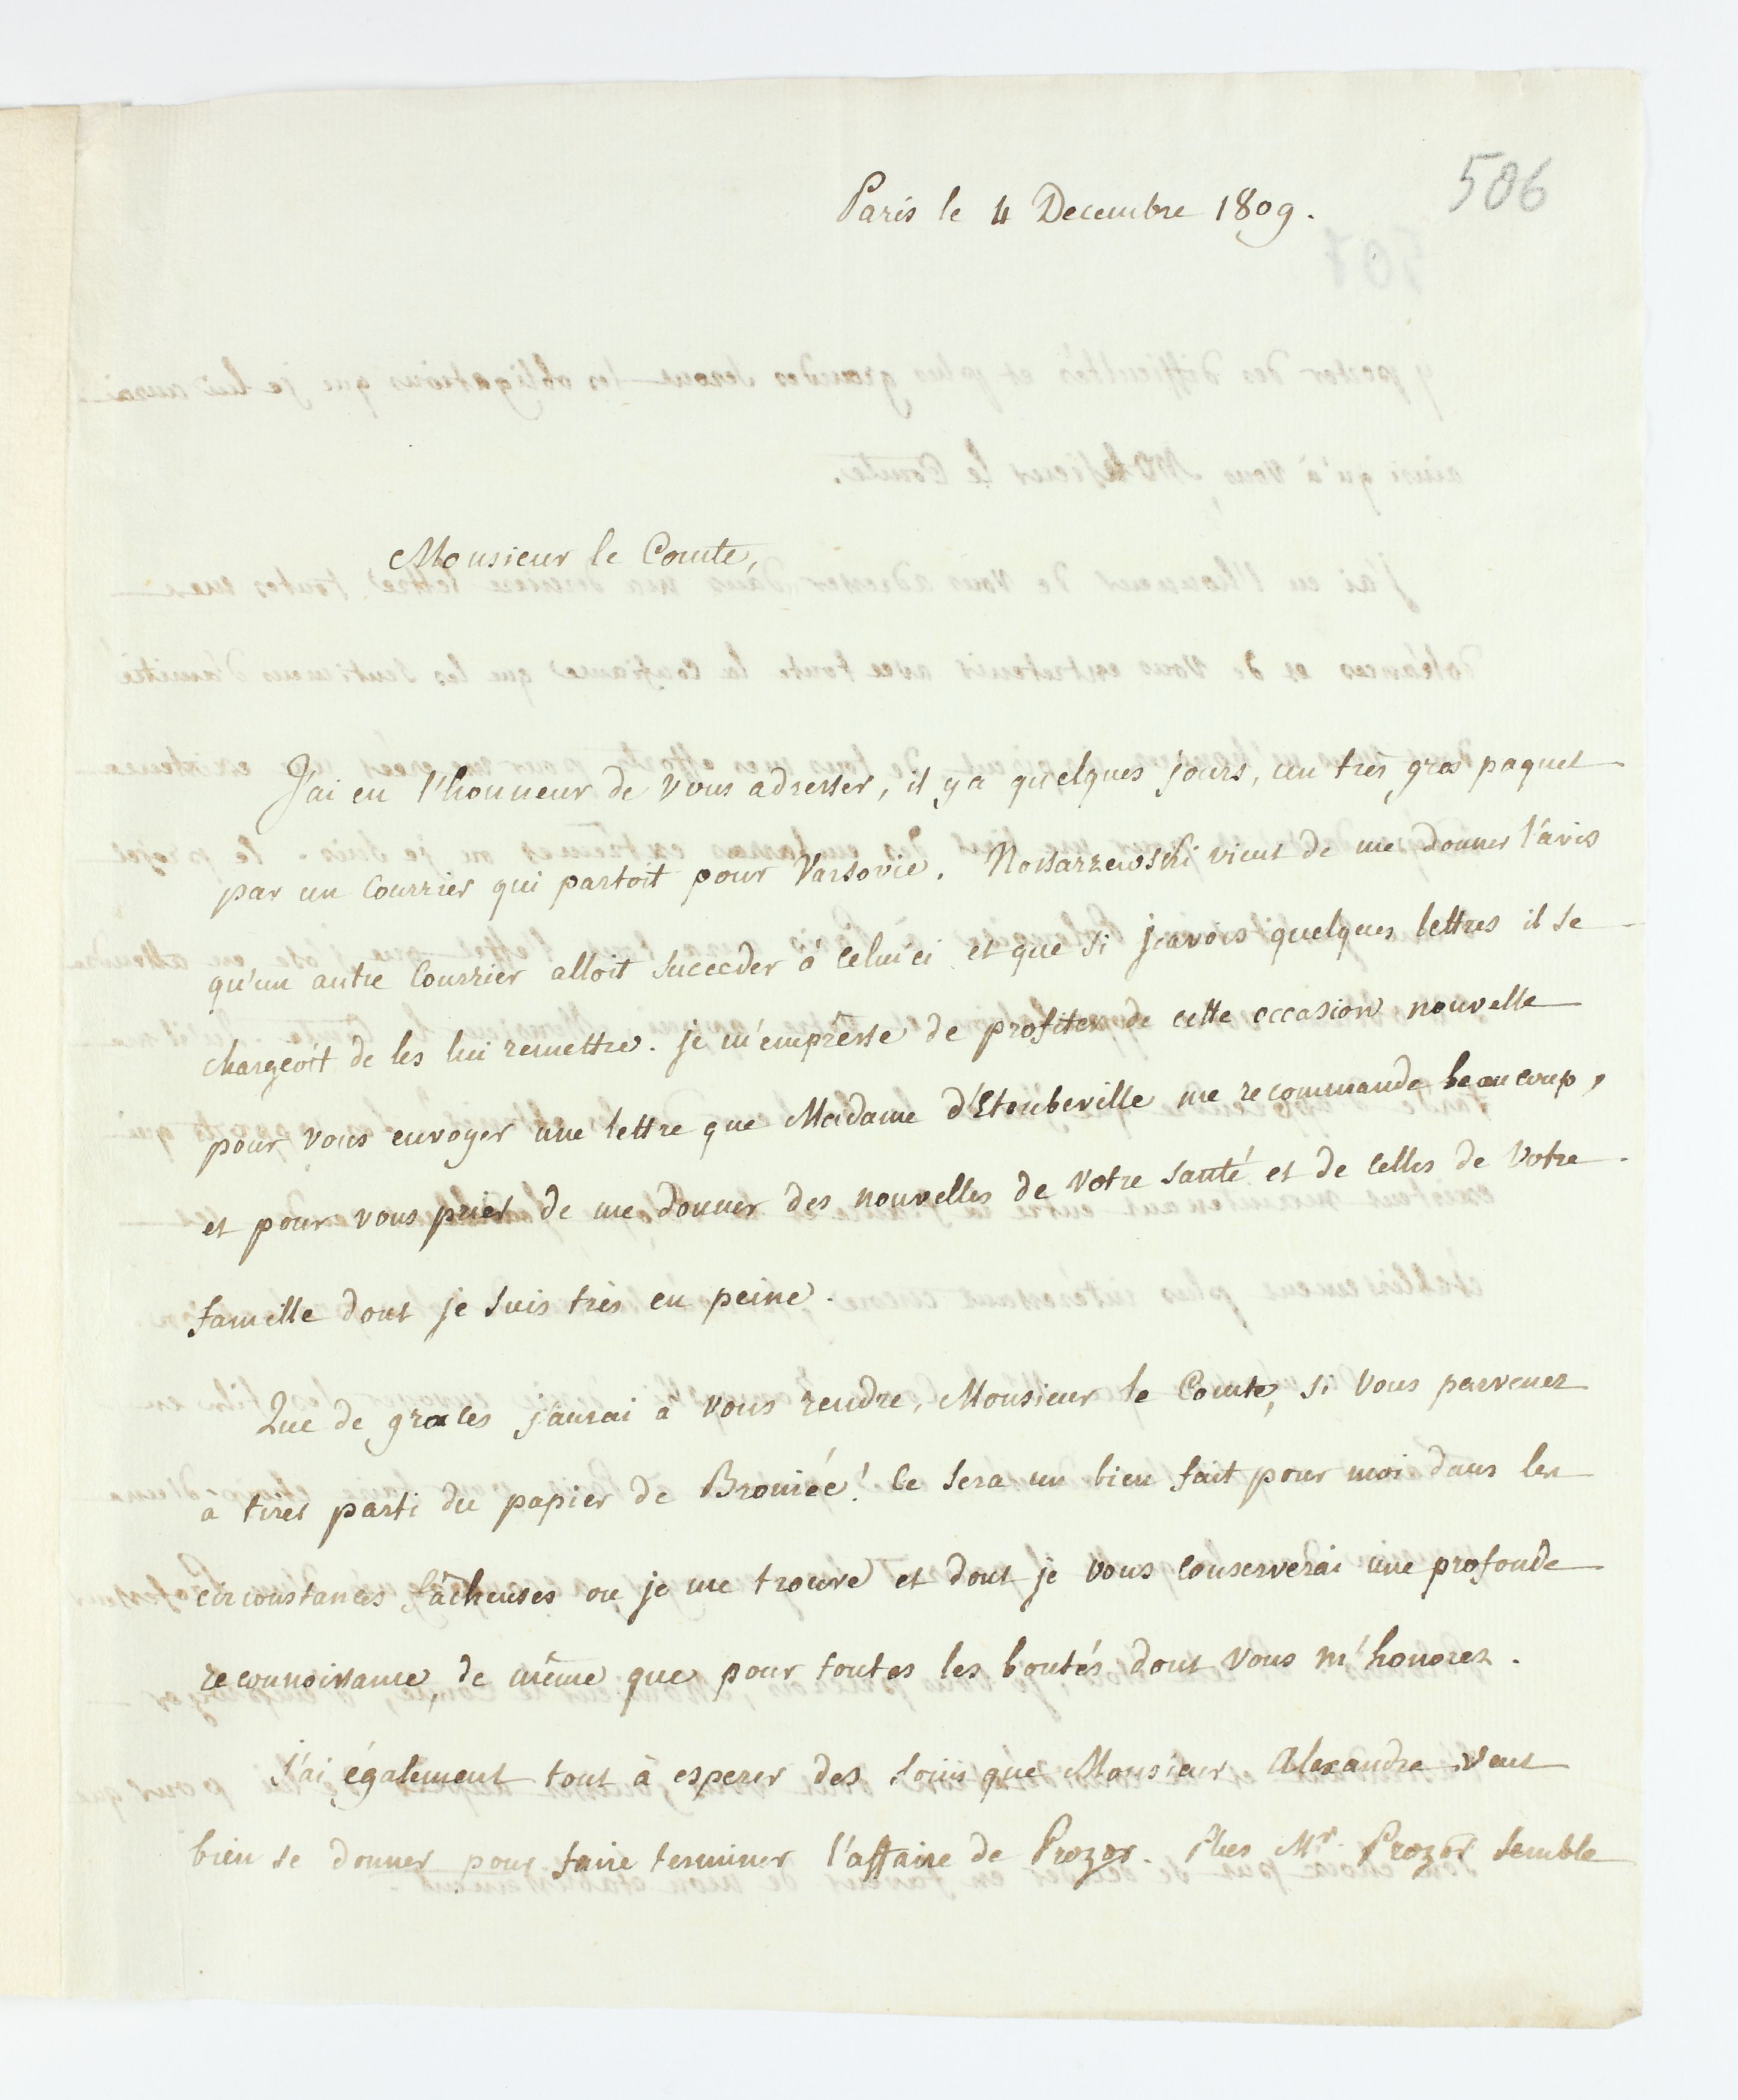 506
Paris le 4 Decembre 1809.
Monsieur le Comte,
J'ai eu l'honneur de vous adresser, il y a quelques jours, un très gros paquet
par un Courrier qui partoit pour Varsovie. Nossarzewski vient de me donner l'avis
qu'un autre Courrier alloit succeder à celui ci et que si j'avois quelques lettres il se
chargeoit de les lui remettre. je m'empresse de profiter de cette occasion nouvelle
pour vous envoyer une lettre que Madame d'Etoubeville me recommande beaucoup,
et pour vous prier de me donner des nouvelles de votre santé et de celles de votre
famille dont je suis très en peine.
Que de graces j'aurai à vous rendre, Monsieur le Comte, si vous parvenez
a tirer parti du papier de Broniée! Ce sera un bien fait pour moi dans les
circonstances fâcheuses ou je me trouve et dont je vous conserverai une profonde
reconnoissance, de même que pour toutes les bontés dont vous m'honorez.
J'ai également tout à esperer des soins que Monsieur Alexandre veut
bien se donner pour faire terminer l'affaire de Prozor. Plus Mr. Prozor semble